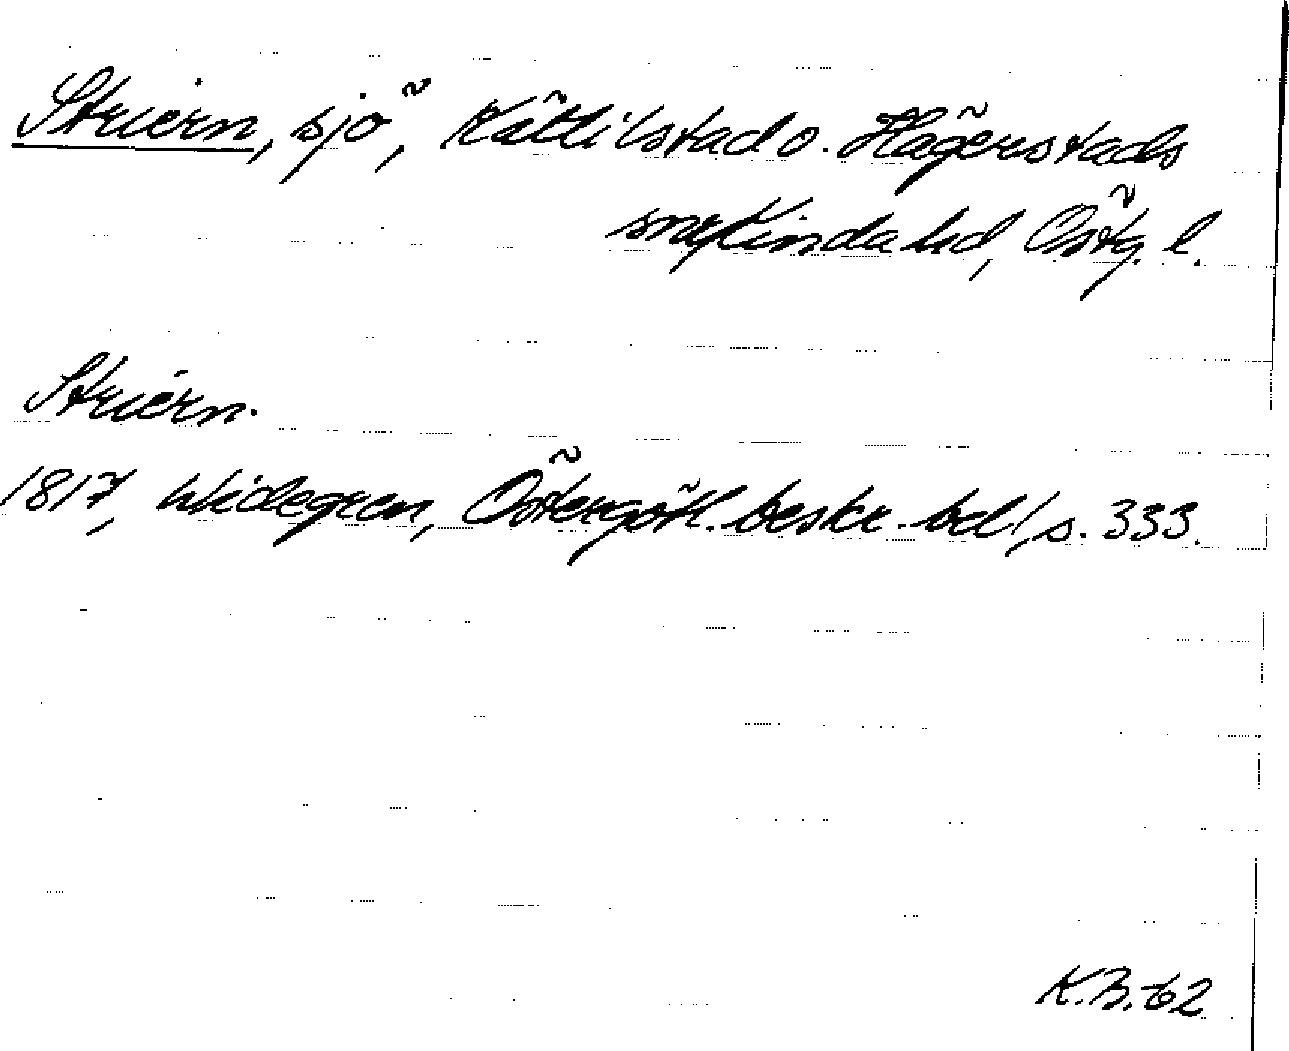 Striern, sjö, Kättilstad o. Hägerstads
snr, Kinda hd, Östg. l.
Striern.
1817, Widegren, Östergötl. beskr. bd I, s. 333.
K.B. 62